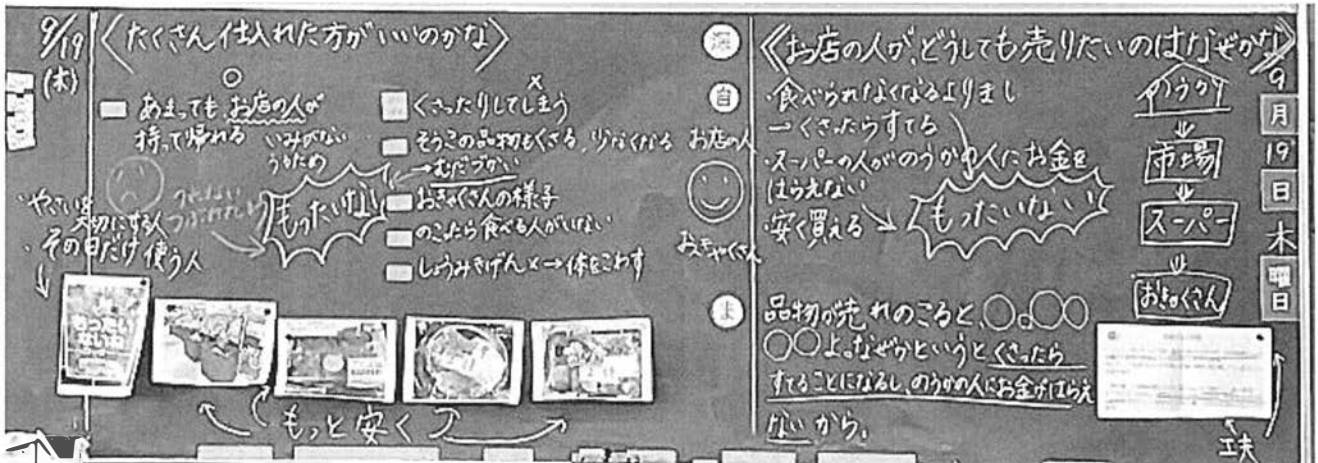 9/19
(木)
〈たくさん仕入れた方がいいのかな〉
○
あまっても お店の人が
持って帰れる
いみがない
うるため
もったいない
・やさいを
大切にする人
・その日だけ使う人
×
くさったりしてしまう
そうこの品物もくさる、少なくなる
→むだづかい
おきゃくさんの様子
のこったら食べる人がいない
しょうみきげん×→体をこわす
もったい
ないね
もっと安く
深
自
お店の人
おきゃくさん
ま
《お店の人が、どうしても売りたいのはなぜかな》
・食べられなくなるよりまし
→くさったらすてる
・スーパーの人がのうかの人にお金を
はらえない
・安く買える
もったいない
品物が売れのこると、○。○○
○○よ。なぜかというとくさったら
すてることになるし、のうかの人にお金がはらえ
ないから。
のうか
市場
スーパー
お客くさん
工夫
9
月
19
日
木
曜
日